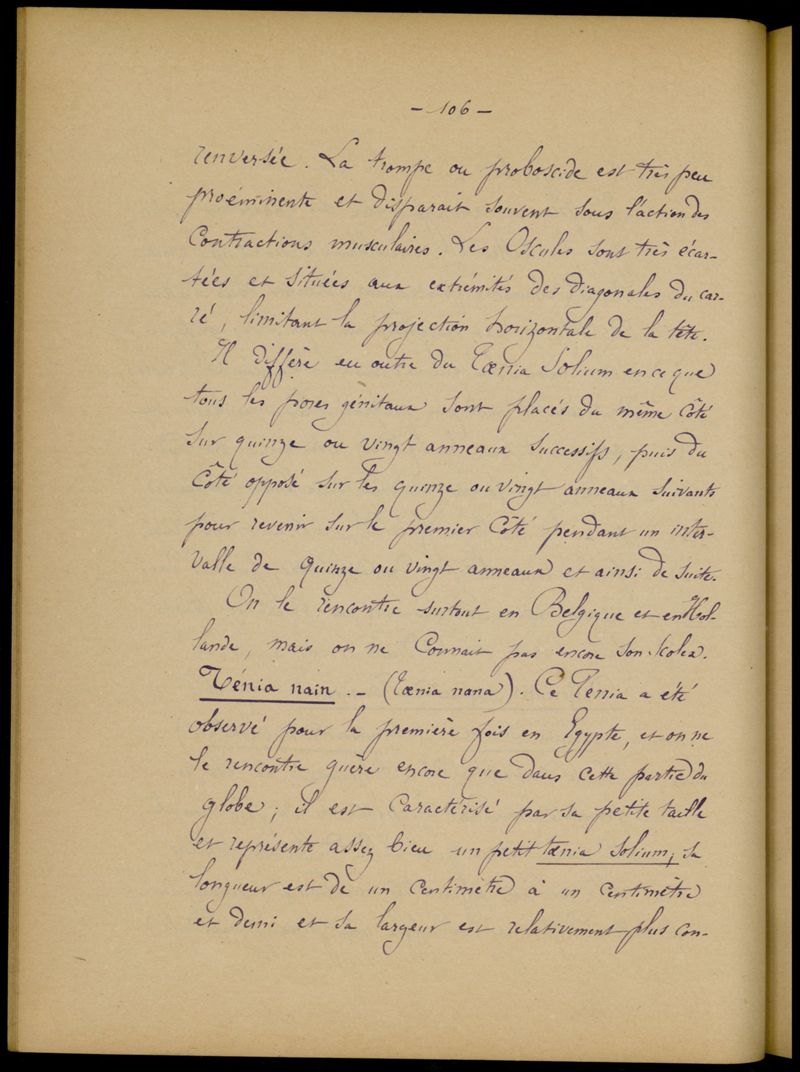 - 106 -
renversée. La trompe ou proboscide est très peu
proéminente et disparait souvent sous l'action des
Contractions musculaires. Les Oscules sont très écar-
tées et situées aux extrémités des diagonales du car-
ré, limitant la projection horizontale de la tête.
Il diffère en outre du Tœnia Solium en ce que
tous les pores génitaux sont placés du même côté
sur quinze ou vingt anneaux successifs, puis du
Côté opposé sur les quinze ou vingt anneaux suivants
pour revenir sur le premier côté pendant un inter-
valle de quinze ou vingt anneaux et ainsi de suite.
On le rencontre surtout en Belgique et en Hol-
lande, mais on ne Connait pas encore son scolex.
Ténia nain. - (Tœnia nana). Ce Tenia a été
observé pour la première fois en Egypte, et on ne
le rencontre guère encore que dans cette partie du
globe; il est Caractérisé par sa petite taille
et représente assez bien un petit tœnia solium, sa
longueur est de un Centimètre à un centimètre
et demi et sa largeur est relativement plus con-